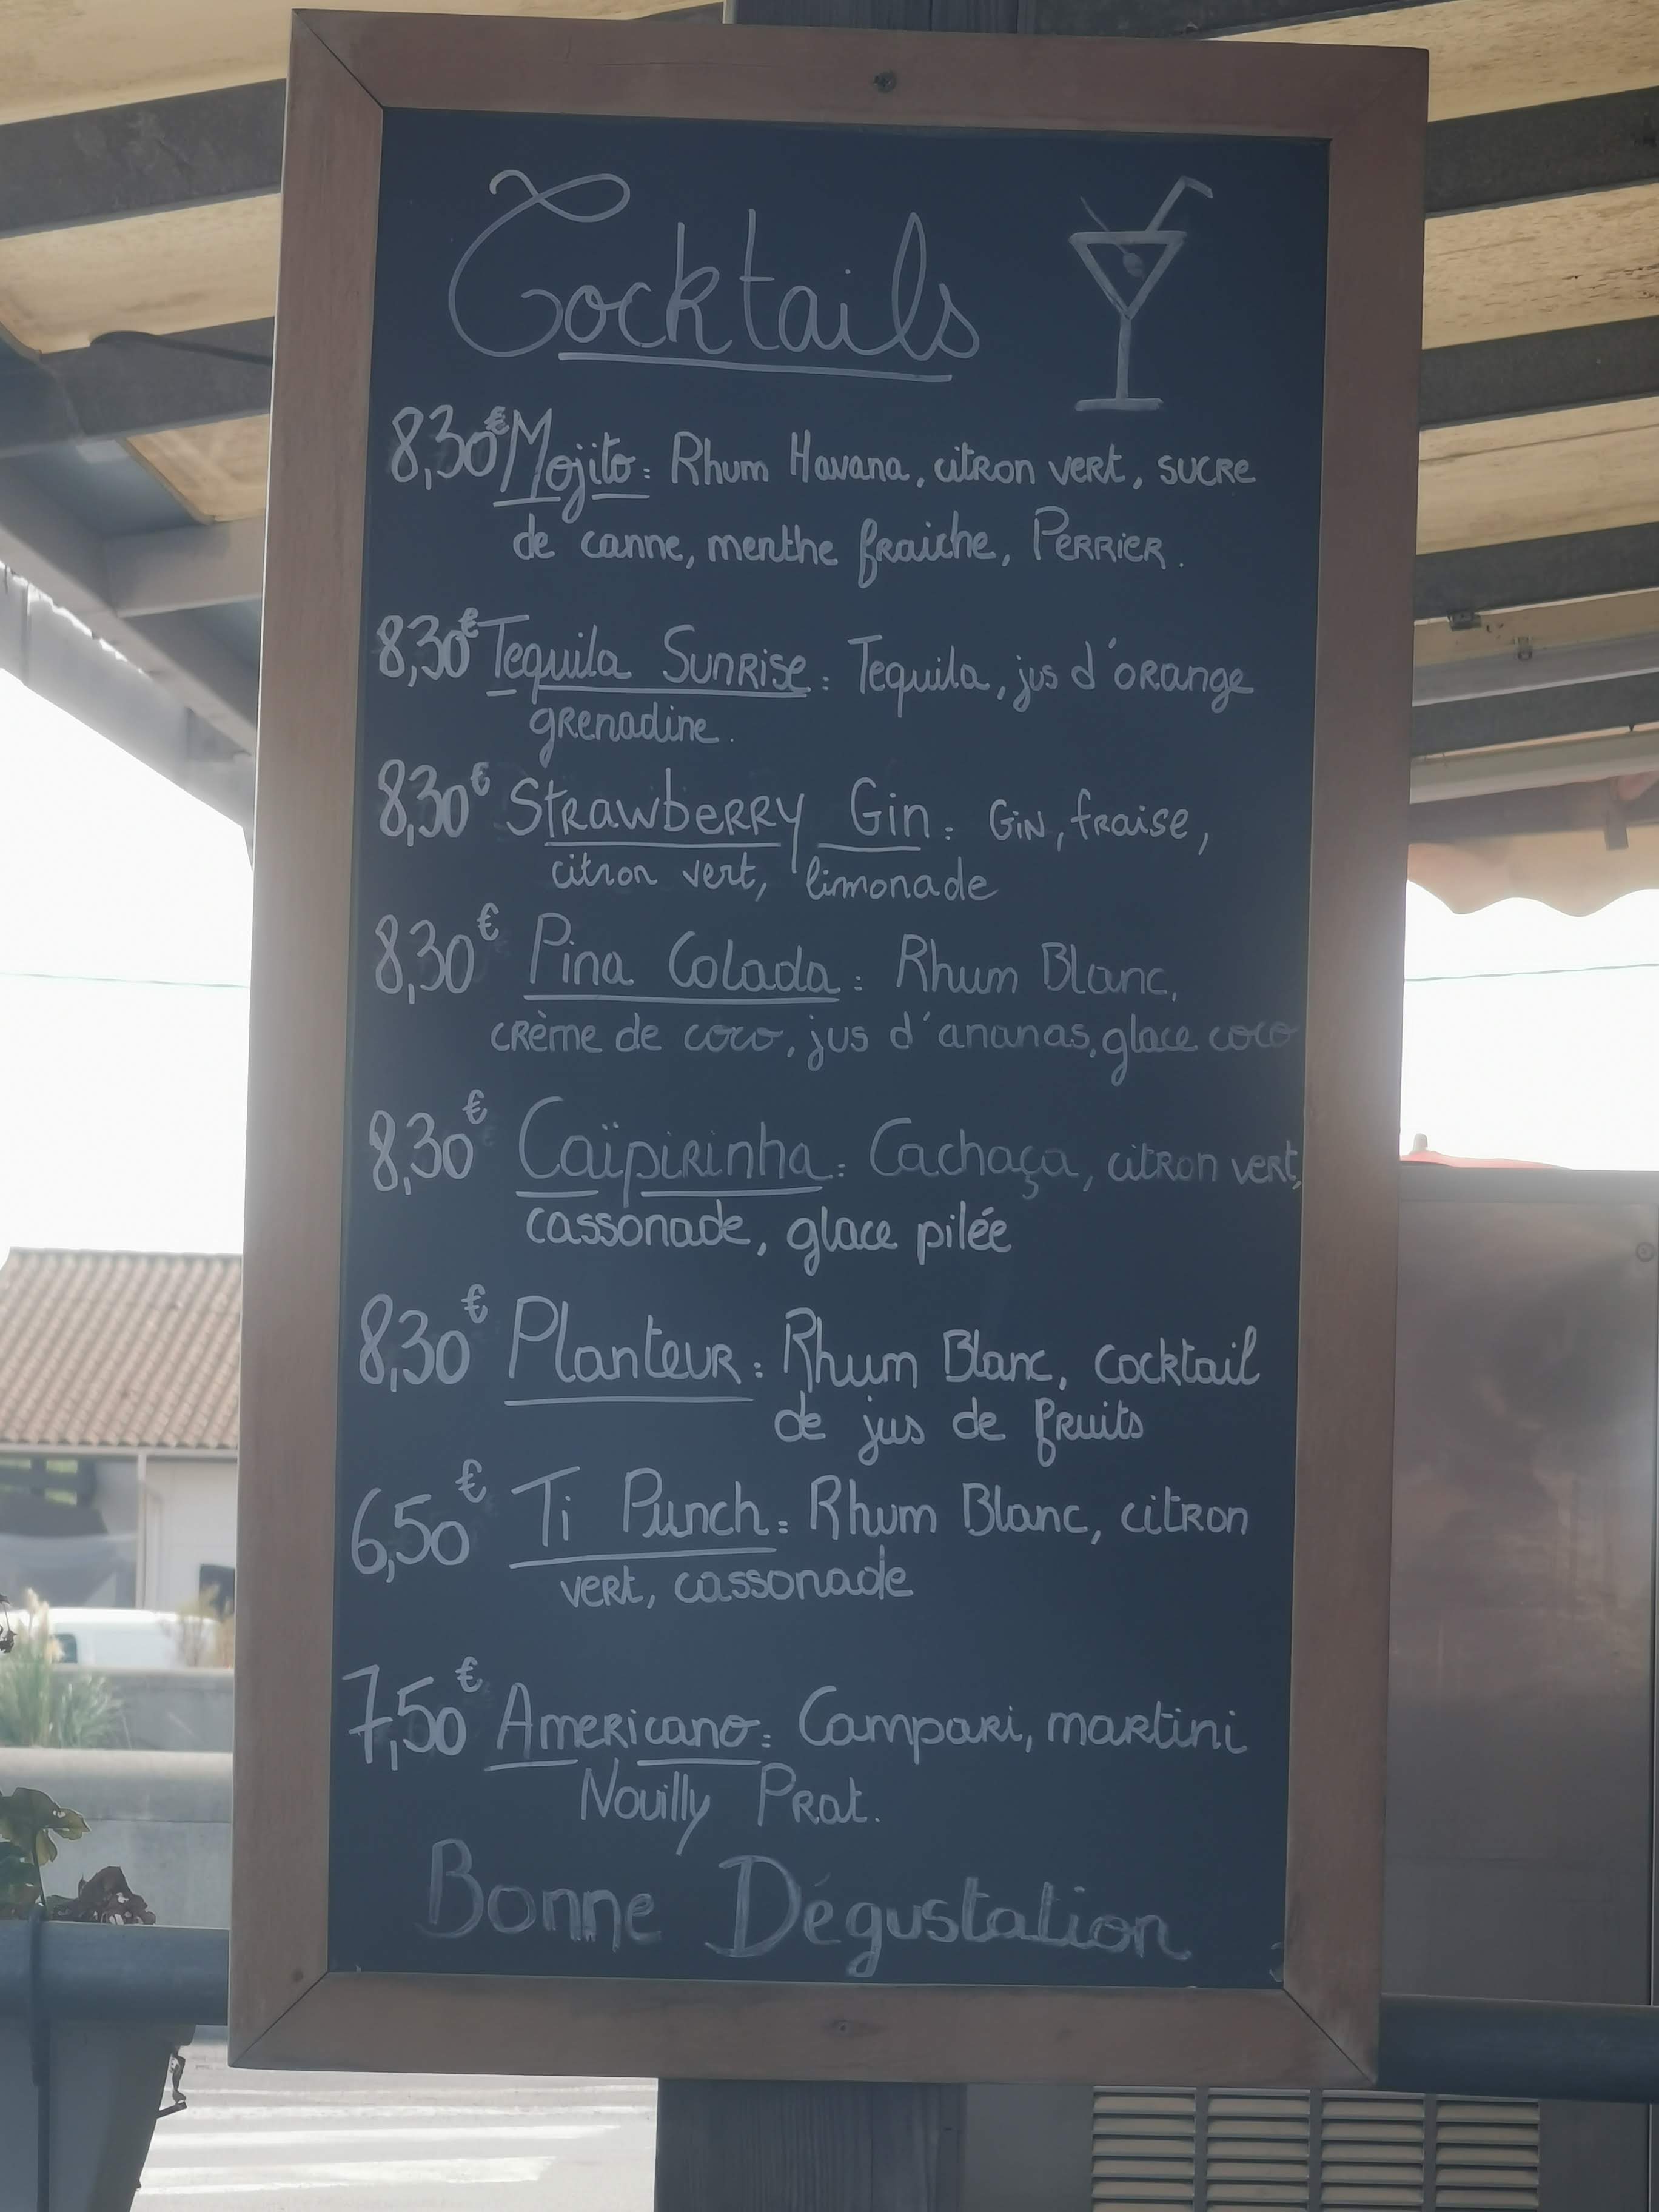 Cocktails
8,30€ Mojito : Rhum Havana, citron vert, sucre
de canne, menthe fraiche, Perrier.
8,30€ Tequila Sunrise : Tequila, jus d'orange
grenadine.
8,30€ Strawberry Gin : Gin, fraise,
citron vert, limonade
8,30€ Pina Colada : Rhum Blanc,
crème de coco, jus d'ananas, glace coco
8,30€ Caïpirinha : Cachaça, citron vert,
cassonade, glace pilée
8,30€ Planteur : Rhum Blanc, cocktail
de jus de fruits
6,50€ Ti Punch : Rhum Blanc, citron
vert, cassonade
7,50€ Americano : Campari, martini
Nouilly Prat.
Bonne Dégustation